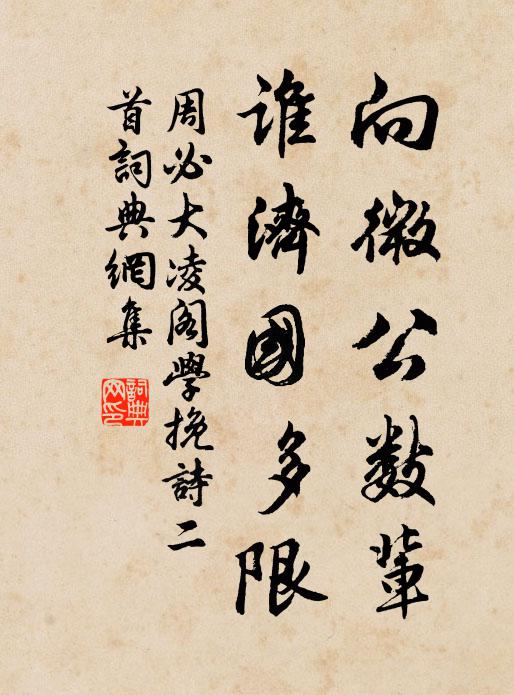 向微公數輩
誰濟國多限
周必大凌閣學挽詩二
首詞典網集
詞典
网印